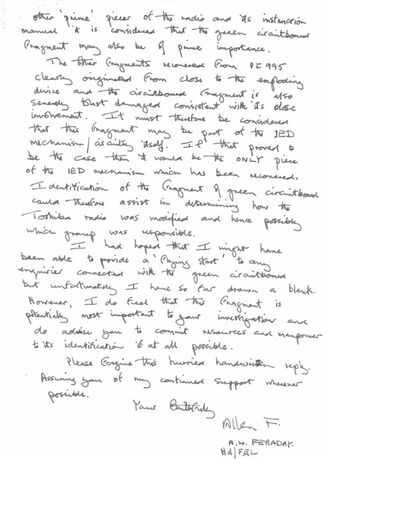 other 'prime' pieces of the radio and its instruction
manual it is considered that the green circuitboard
fragment may also be of prime importance.
The other fragments recovered from PI 995
clearly originated from close to the exploding
device and the circuitboard fragment is also
severely blast damaged consistent with its close
involvement. It must therefore be considered
that this fragment may be part of the IED
mechanism/circuitry itself. If that proved to
be the case then it would be the ONLY piece
of the IED mechanism which has been recovered.
Identification of the fragment of green circuitboard
could therefore assist in determining how the
Toshiba radio was modified and hence possibly
which group was responsible.
I had hoped that I might have
been able to provide a 'flying start' to any
enquiries connected with the green circuitboard
but unfortunately I have so far drawn a blank.
However, I do feel that this fragment is
potentially most important to your investigation and
do advise you to commit resources and manpower
to its identification if at all possible.
Please forgive this hurried handwritten reply.
Assuring you of my continued support wherever
possible.
Yours faithfully
Allen F.
A.W. FERADAY.
Hd/FEL